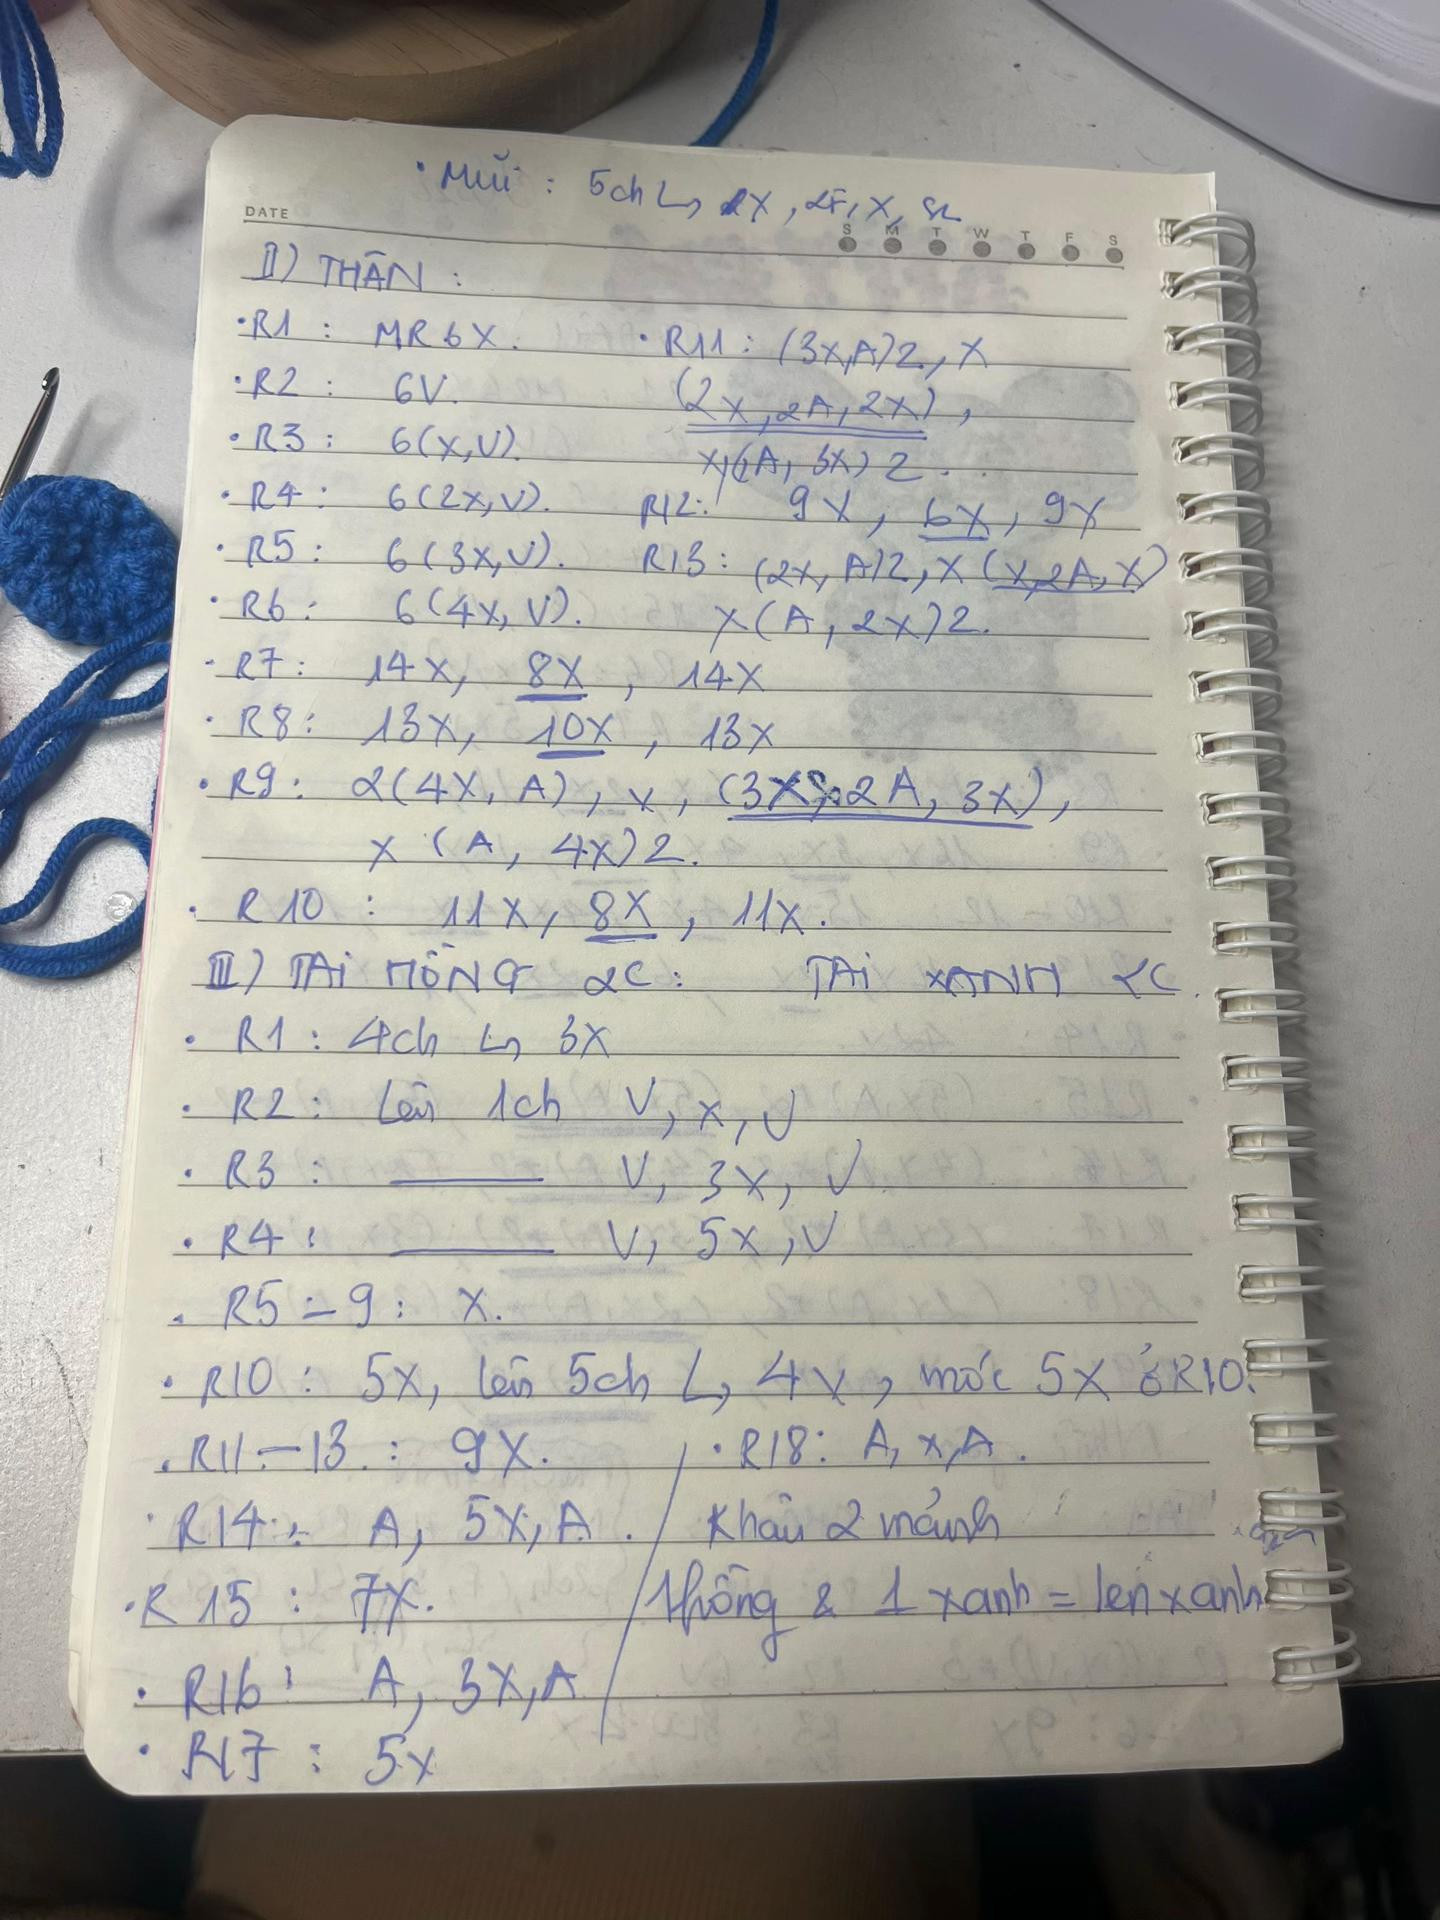 • Mũi : 5ch ↳ 2X, 2F, X, SL
DATE
S M T W T F S
II) THÂN :
• R1 : MR 6X.
• R2 : 6V.
• R3 : 6(X,V).
• R4 : 6(2X,V).
• R5 : 6(3X,V).
• R6 : 6(4X,V).
• R7 : 14X, 8X, 14X
• R8 : 13X, 10X, 13X
• R9 : 2(4X, A), X, (3X, 2A, 3X),
X (A, 4X)2.
• R10 : 11X, 8X, 11X.
• R11 : (3X,A)2, X
(2X, 2A, 2X),
X, (A, 3X) 2.
R12: 9X, 6X, 9X
R13: (2X, A)2, X (X, 2A, X)
X (A, 2X)2.
III) TAI HỒNG 2C : TAI XANH 2C.
• R1 : 4ch ↳ 3X
• R2 : Lên 1ch V, X, V
• R3 : —— V, 3X, V
• R4 : —— V, 5X, V
• R5 – 9 : X.
• R10 : 5X, lên 5ch ↳ 4X, móc 5X ở R10.
• R11 – 13 : 9X.
• R14 : A, 5X, A.
• R15 : 7X.
• R16 : A, 3X, A
• R17 : 5X
• R18: A, X, A.
Khâu 2 mảnh
1 hồng & 1 xanh = len xanh